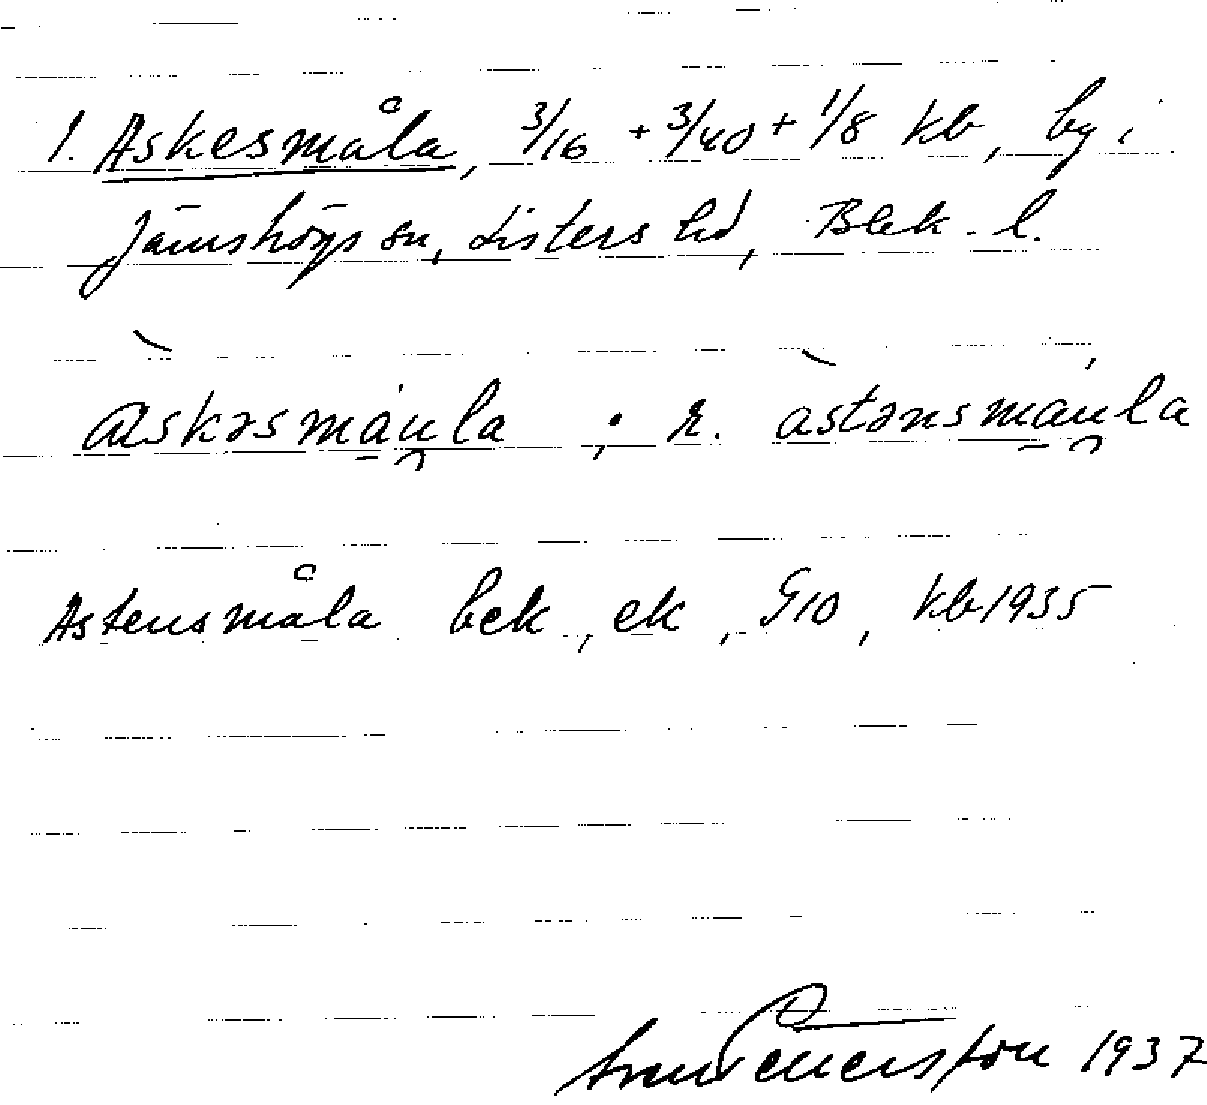 1. Askesmåla, 3/16 + 3/40 + 1/8 kb, by i
Jämshögs sn, Listers hd, Blek. l.
àskəsmáu̯la ; r. àstənsmáu̯la
Astensmåla bek, ek, G10, kb 1935
1937